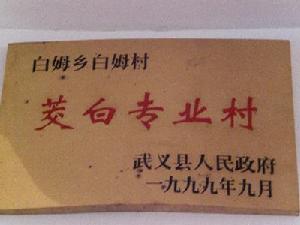 白姆乡白姆村
茭白专业村
武义县人民政府
一九九九年九月